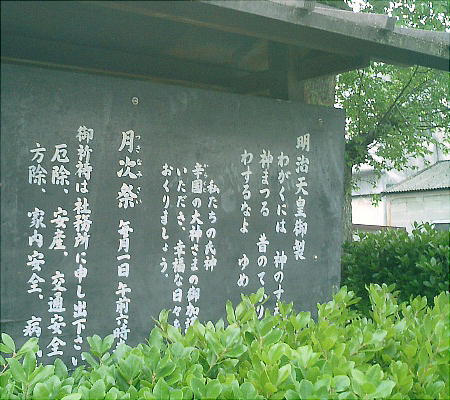 明治天皇御製
わがくには 神のす
神まつる 昔のてぶり
わするなよ ゆめ
私たちの氏神
幸国の大神さまの御加
いただき、幸福な日々を
おくりましょう。
つきなみさい
月次祭 毎月一日 午前十時
御祈祷は社務所に申し出下さい
厄除、安産、交通安全
方除、家内安全、病